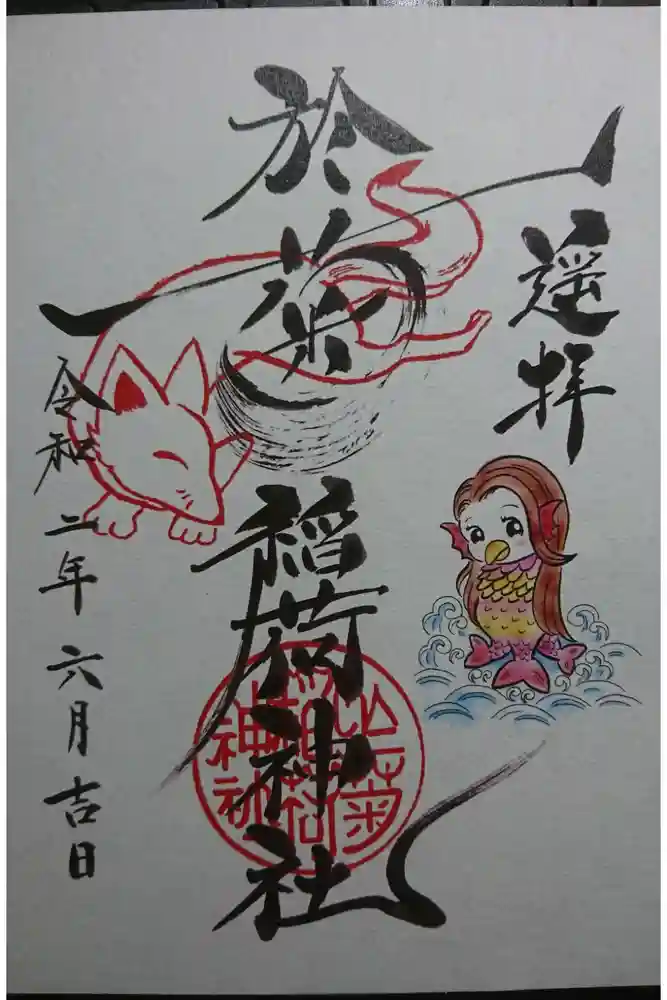 遥拝
於菊稲荷神社
令和二年六月吉日
於菊
稲荷
神社